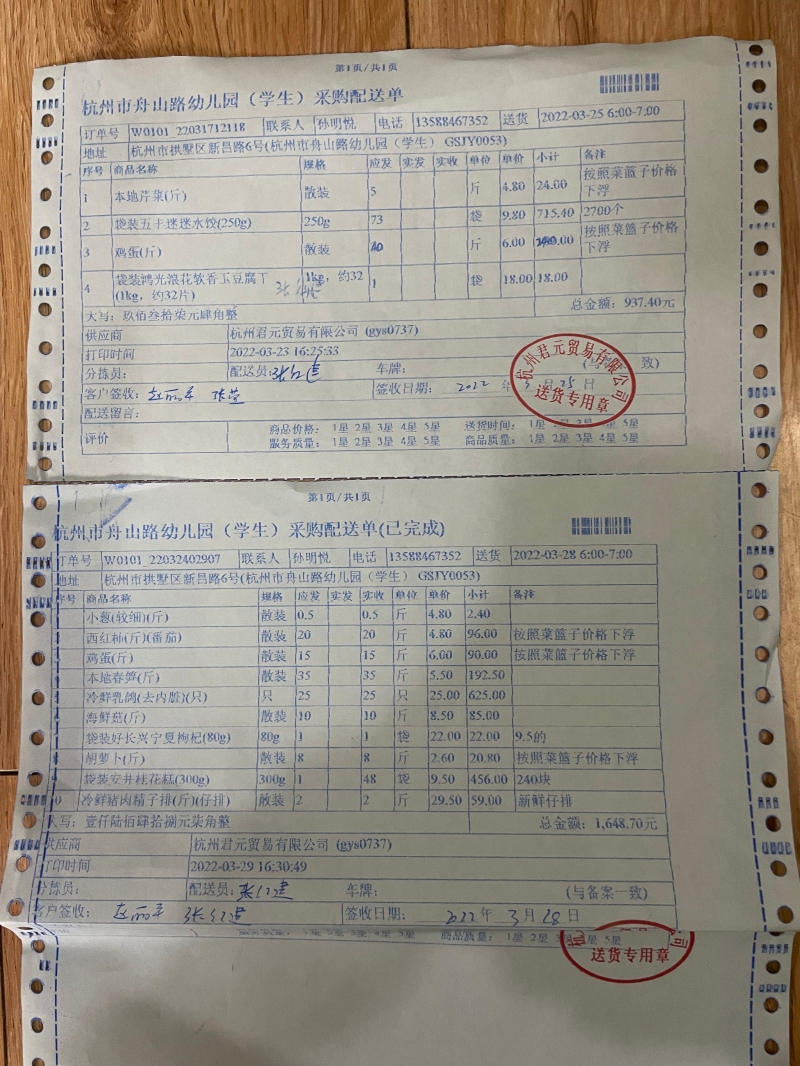 第1页/共1页
杭州市舟山路幼儿园（学生）采购配送单
订单号 W0101_22031712118 联系人 孙明悦 电话 13588467352 送货 2022-03-25 6:00-7:00
地址 杭州市拱墅区新昌路6号(杭州市舟山路幼儿园（学生） GSJY0053)
序号 商品名称 规格 应发 实发 实收 单位 单价 小计 备注
1 本地芹菜(斤) 散装 5 斤 4.80 24.00 按照菜篮子价格下浮
2 袋装五丰迷迷水饺(250g) 250g 73 袋 9.80 715.40 2700个
3 鸡蛋(斤) 散装 斤 6.00 按照菜篮子价格下浮
4 袋装鸿光浪花软香玉豆腐干(1kg，约32片) 1kg，约32 1 袋 18.00 18.00
大写：玖佰叁拾柒元肆角整 总金额：937.40元
供应商 杭州君元贸易有限公司 (gys0737)
打印时间 2022-03-23 16:25:33
分拣员： 配送员：张红建 车牌： 一致)
客户签收：赵丽平 张莹 签收日期： 2022 年 3 月 25 日
杭州君元贸易有限公司
送货专用章
配送留言：
评价 商品价格： 1星 2星 3星 4星 5星 送货时间： 1星 2星 3星 4星 5星
服务质量： 1星 2星 3星 4星 5星 商品质量： 1星 2星 3星 4星 5星
第1页/共1页
杭州市舟山路幼儿园（学生）采购配送单(已完成)
订单号 W0101_22032402907 联系人 孙明悦 电话 13588467352 送货 2022-03-28 6:00-7:00
地址 杭州市拱墅区新昌路6号(杭州市舟山路幼儿园（学生） GSJY0053)
序号 商品名称 规格 应发 实发 实收 单位 单价 小计 备注
小葱(较细)(斤) 散装 0.5 0.5 斤 4.80 2.40
西红柿(斤)(番茄) 散装 20 20 斤 4.80 96.00 按照菜篮子价格下浮
鸡蛋(斤) 散装 15 15 斤 6.00 90.00 按照菜篮子价格下浮
本地春笋(斤) 散装 35 35 斤 5.50 192.50
冷鲜乳鸽(去内脏)(只) 只 25 25 只 25.00 625.00
海鲜菇(斤) 散装 10 10 斤 8.50 85.00
袋装好长兴宁夏枸杞(80g) 80g 1 1 袋 22.00 22.00 9.5的
胡萝卜(斤) 散装 8 8 斤 2.60 20.80 按照菜篮子价格下浮
袋装安井桂花糕(300g) 300g 1 48 袋 9.50 456.00 240块
0 冷鲜猪肉精子排(斤)(仔排) 散装 2 2 斤 29.50 59.00 新鲜仔排
大写：壹仟陆佰肆拾捌元柒角整 总金额：1,648.70元
供应商 杭州君元贸易有限公司 (gys0737)
打印时间 2022-03-29 16:30:49
分拣员： 配送员：张红建 车牌： (与备案一致)
客户签收： 赵丽平 张红建 签收日期： 2022 年 3 月 28 日
商品质量： 1星 2星 3星 4星 5星
送货专用章